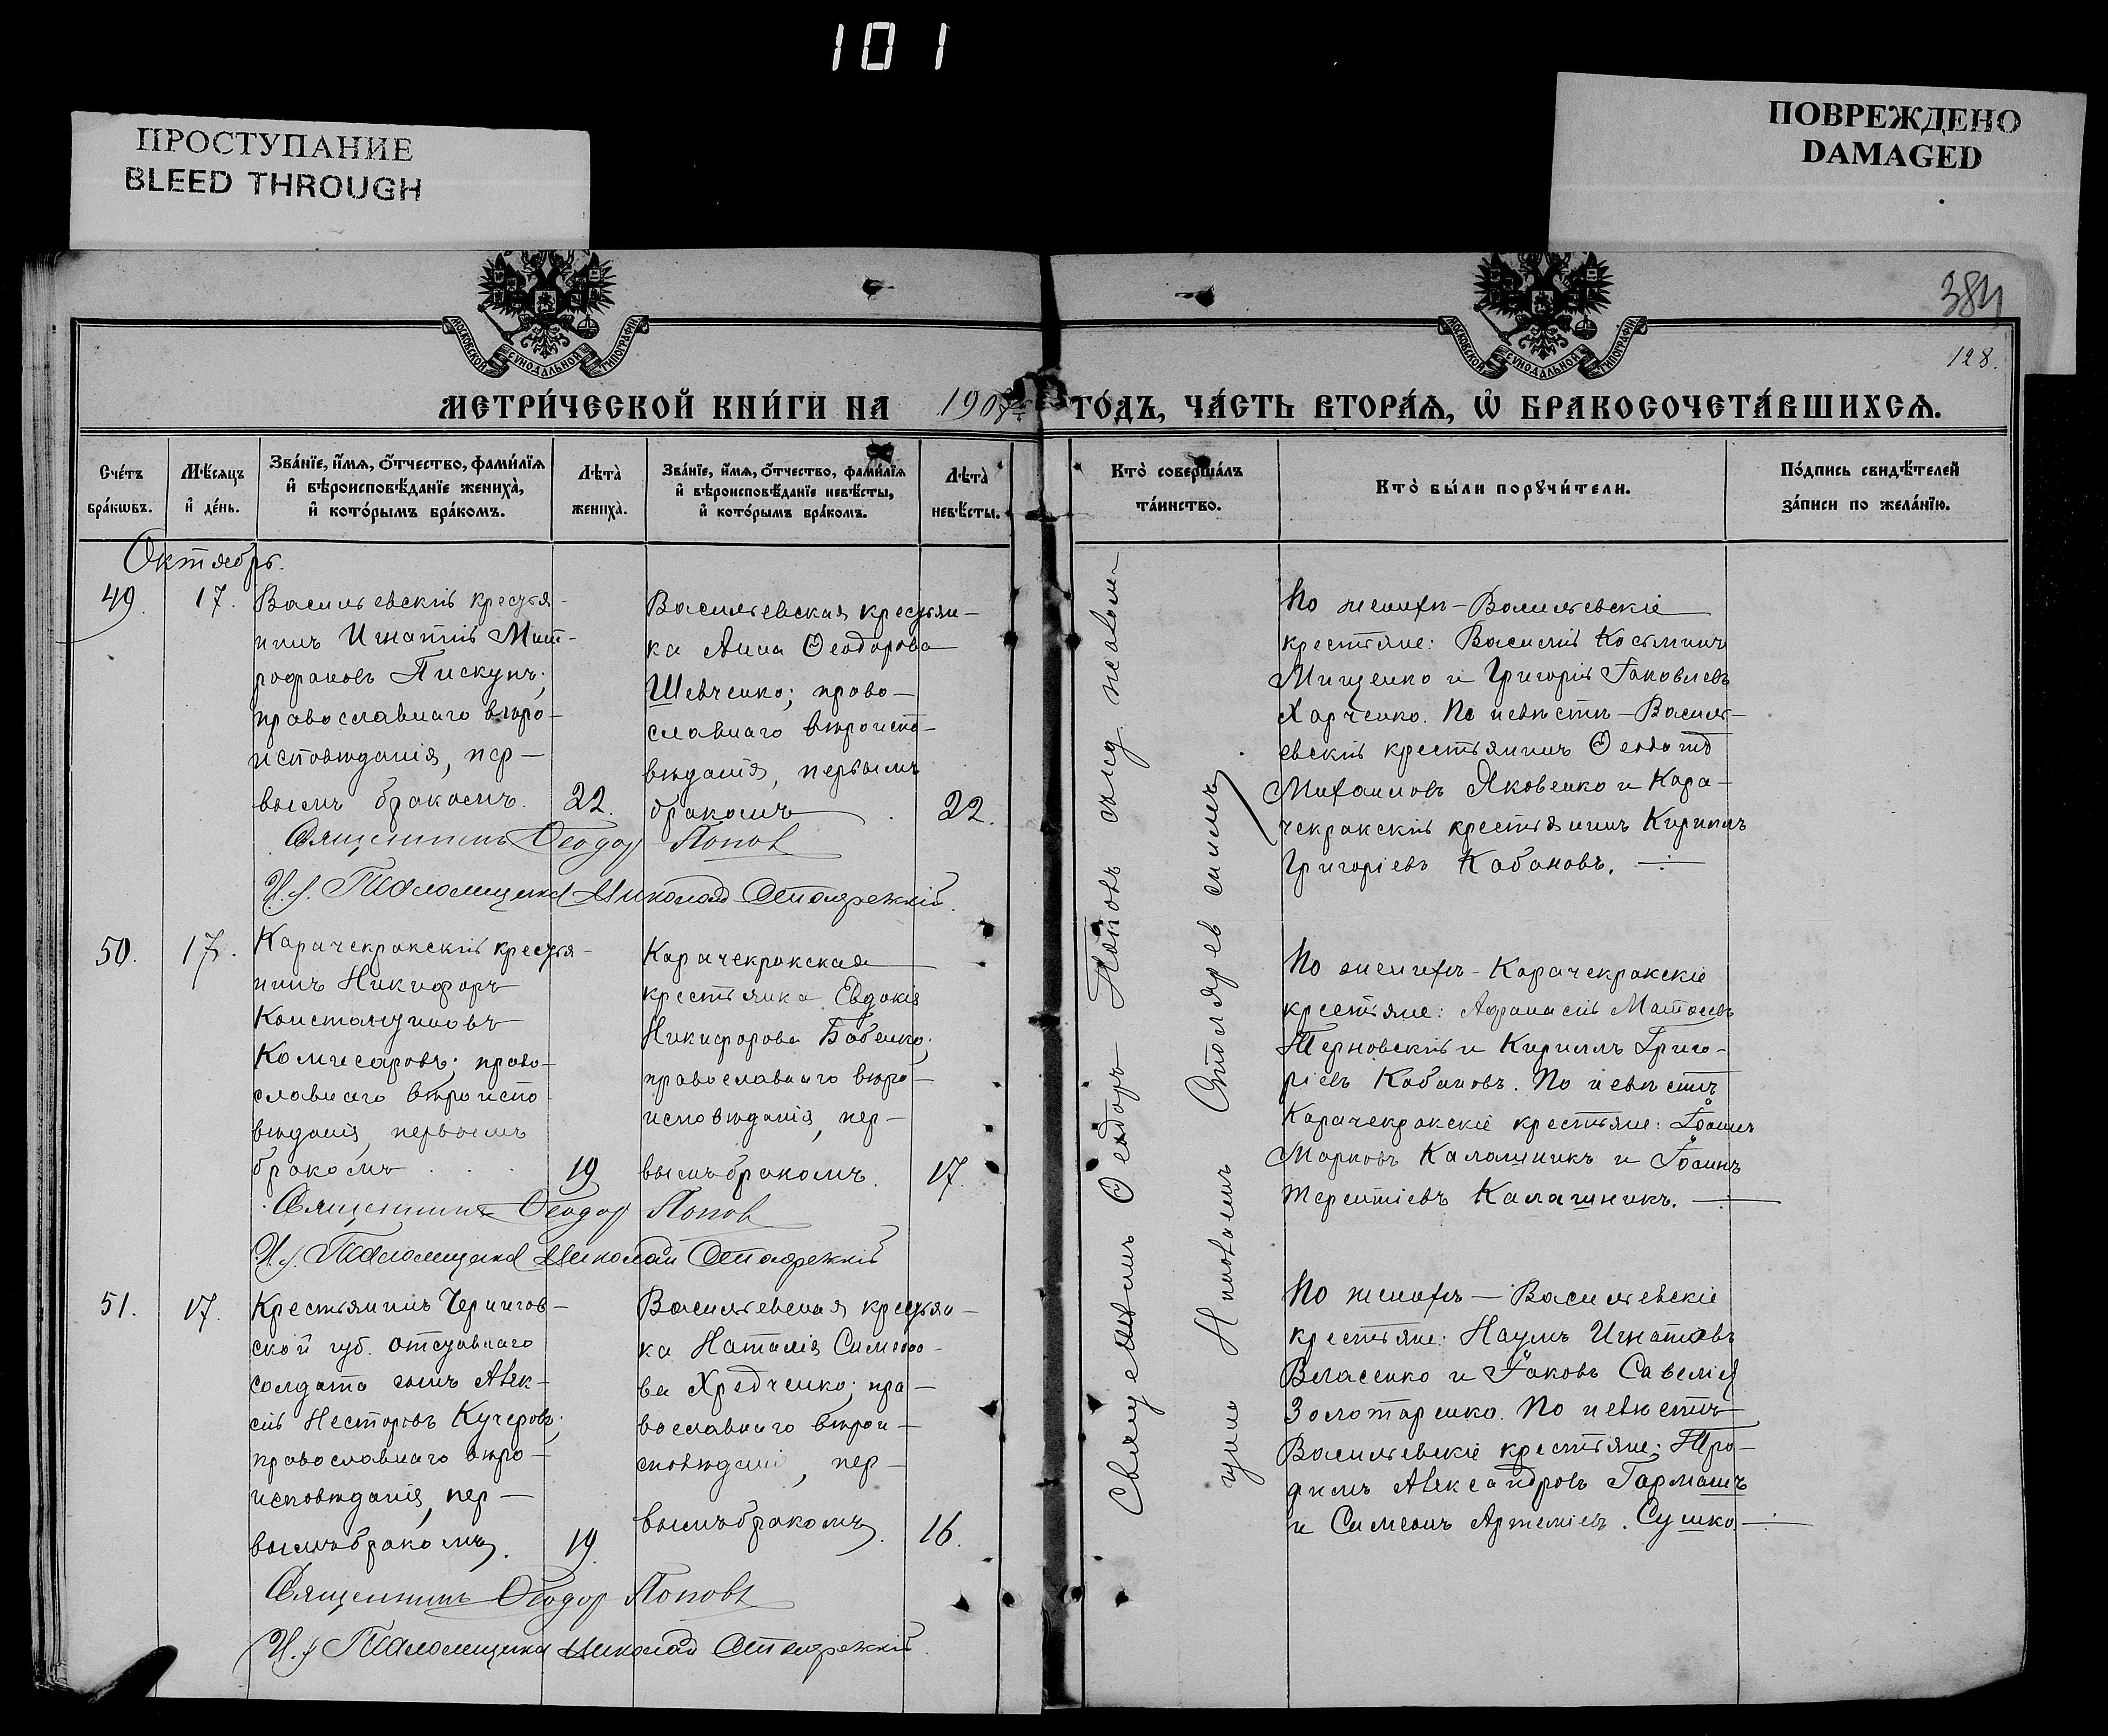 101
ПРОСТУПАНИЕ
BLEED THROUGH
ПОВРЕЖДЕНО
DAMAGED
МОСКОВСКОЙ СУНОДАЛЬНОЙ ТИПОГРАФІИ
МОСКОВСКОЙ СУНОДАЛЬНОЙ ТИПОГРАФІИ
384
128.
МЕТРИ́ЧЕСКОЙ КНИ́ГИ НА 1907 ГО́ДЪ, ЧА́СТЬ ВТОРА́Ѧ, Ѡ҆ БРАКОСОЧЕТА́ВШИХСѦ.
Сче́тъ
бра́кѡвъ.
Мѣ́сяцъ
и҆ де́нь.
Зва́нїе, и҆́мѧ, ѻ҆́тчество, фами́лїѧ
и҆ вѣроисповѣ́данїе жениха̀,
и҆ кото́рымъ бра́комъ.
Лѣта̀
жениха̀.
Зва́нїе, и҆́мѧ, ѻ҆́тчество, фами́лїѧ
и҆ вѣроисповѣ́данїе невѣ́сты,
и҆ кото́рымъ бра́комъ.
Лѣта̀
невѣ́сты.
Кто̀ соверша́лъ
та́инство.
Кто̀ бы́ли порꙋчи́тели.
По́дпись свидѣ́телей
за́писи по жела́нїю.
Октябрь.
49.
17.
Васильевскій крестья-
нинъ Игнатій Мит-
рофановъ Пискунъ;
православнаго вѣро-
исповѣданія, пер-
вымъ бракомъ.
22.
Васильевская крестьян-
ка Анна Ѳеодорова
Шевченко; право-
славнаго вѣроиспо-
вѣданія, первымъ
бракомъ
22.
По женихѣ - Васильевскіе
крестьяне: Василій Косьминъ
Мищенко и Григорій Іаковлевъ
Харченко. По невѣстѣ - Василь-
евскій крестьянинъ
Михаиловъ Яковенко и Кара-
чекракскій крестьянинъ Кириллъ
Григоріевъ Кабановъ.
Священникъ Ѳеодор Попов
И. д. Псаломщика Николай
50.
17.
Карачекракскій крестья-
нинъ Никифоръ
Константиновъ
Комисаровъ; право-
славнаго вѣроиспо-
вѣданія, первымъ
бракомъ
19
Карачекракская
крестьянка Евдокія
Никифорова Бабенко;
православнаго вѣро-
исповѣданія, пер-
вымъ бракомъ.
17.
По женихѣ - Карачекракскіе
крестьяне: Афанасій Матѳеевъ
Терновскій и Кириллъ Григо-
ріевъ Кабановъ. По невѣстѣ
Карачекракскіе крестьяне: Іоаннъ
Марковъ Калашникъ и Іоаннъ
Терентіевъ Калашникъ.
Священникъ Ѳеодор Попов
И. д. Псаломщика Николай
51.
17.
Крестьянинъ Чернигов-
ской губ. отставнаго
солдата сынъ Алек-
сій Несторовъ Кучеровъ;
православнаго вѣро-
исповѣданія, пер-
вымъ бракомъ.
19.
Васильевская крестьян-
ка Наталія Симеоно-
ва Хредченко; пра-
вославнаго вѣрои-
сповѣданія, пер-
вымъ бракомъ.
16.
По женихѣ - Васильевскіе
крестьяне: Наумъ Игнатовъ
Власенко и Іаковъ Савеліев
Золотаренко. По невѣстѣ
Васильевскіе крестьяне: Тро-
фимъ Александровъ Гармашъ
и Симеонъ Артеміевъ Сушко
Священникъ Ѳеодор Поповъ
И. д. Псаломщика Николай
Священникъ Ѳеодоръ Поповъ съ и.д. псалом-
щика Николаемъ